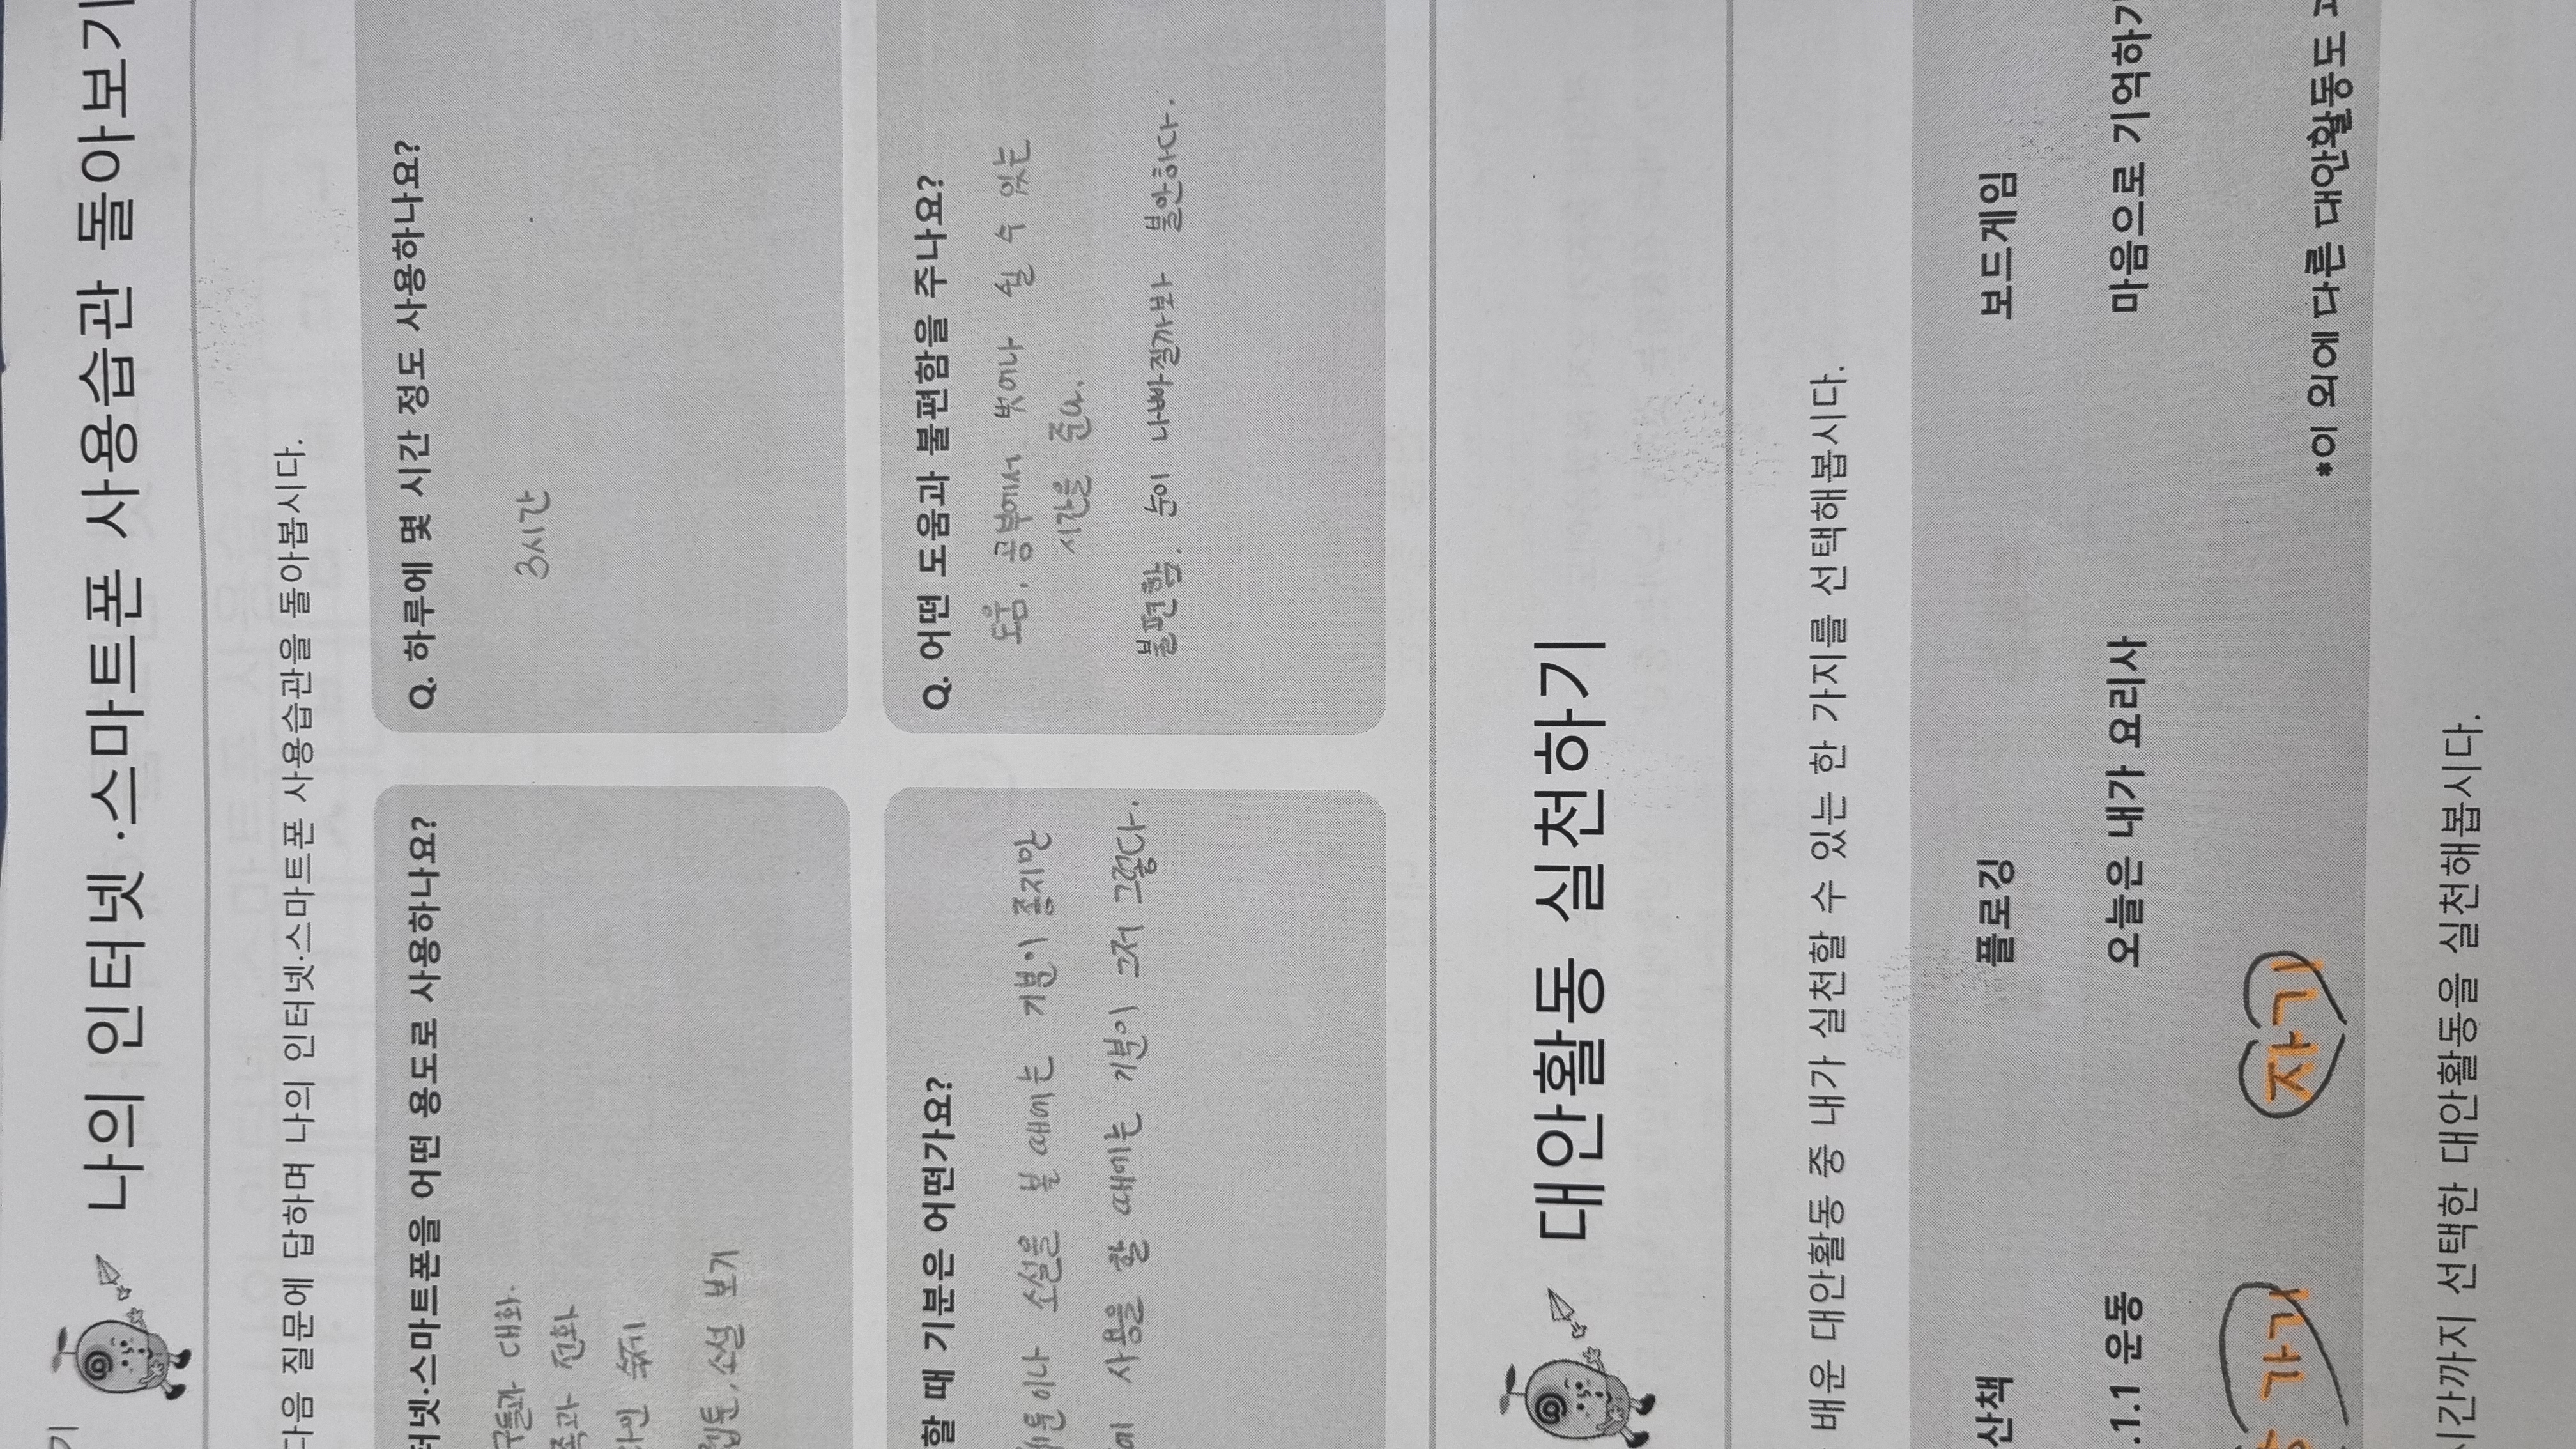 나의 인터넷·스마트폰 사용습관 돌아보기
다음 질문에 답하며 나의 인터넷·스마트폰 사용습관을 돌아봅시다.
터넷·스마트폰을 어떤 용도로 사용하나요?
구들과 대화.
족과 전화
숙제
웹툰, 소설 보기
Q. 하루에 몇 시간 정도 사용하나요?
3시간
할 때 기분은 어떤가요?
웹툰이나 소설을 볼 때에는 기분이 좋지만
사용을 할 때에는 기분이 그저 그렇다.
Q. 어떤 도움과 불편함을 주나요?
도움, 공부에서 벗어나 쉴 수 있는
시간을 준다.
불편함. 눈이 나빠질까봐 불안하다.
대안활동 실천하기
배운 대안활동 중 내가 실천할 수 있는 한 가지를 선택해봅시다.
산책 플로깅 보드게임
.1.1 운동 오늘은 내가 요리사 마음으로 기억하기
가기 자기
*이 외에 다른 대안활동도
시간까지 선택한 대안활동을 실천해봅시다.